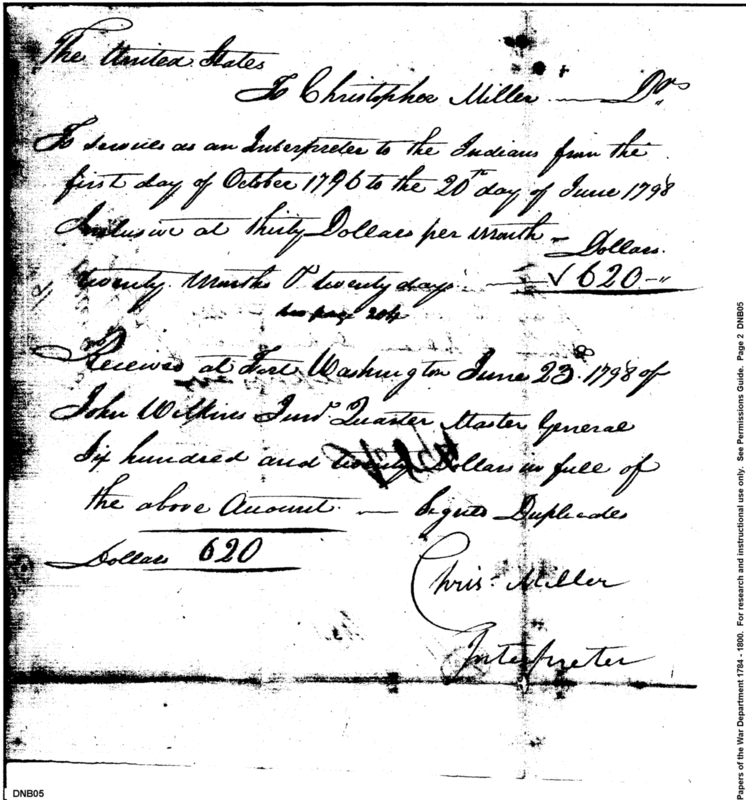 The United States
To Christopher Miller — Drs
To services as an Interpreter to the Indians from the
first day of October 1796 to the 20th day of June 1798
Inclusive at thirty Dollars per month —
Dollars.
twenty months & twenty days — √ 620 — "
see page 204
Received at Fort Washington June 23d. 1798 of
John Wilkins Junr Quarter Master General
Six hundred and twenty Dollars in full of
the above Amount — Signed Duplicates
Dollars 620
Chris. Miller
Interpreter
DNB05
Papers of the War Department 1784 - 1800. For research and instructional use only. See Permissions Guide. Page 2 DNB05